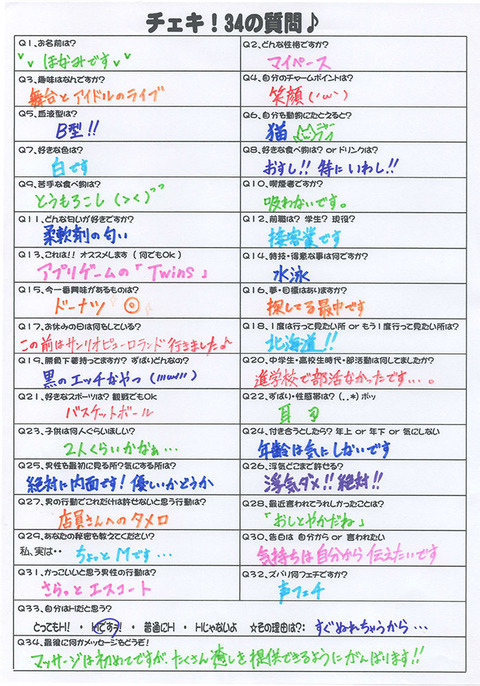 チェキ！34の質問♪
Q1、お名前は？
ほなみです
Q2、どんな性格ですか？
マイペース
Q3、趣味はなんですか？
舞台とアイドルのライブ
Q4、自分のチャームポイントは？
笑顔(''ω'')
Q5、血液型は？
B型!!
Q6、自分を動物にたとえると？
猫
Q7、好きな色は？
白です
Q8、好きな食べ物は？ or ドリンクは？
おすし!! 特にいわし!!
Q9、苦手な食べ物は？
とうもろこし(＞＜)
Q10、喫煙者ですか？
吸わないです。
Q11、どんな匂いが好きですか？
柔軟剤の匂い
Q12、前職は？ 学生？ 現役？
接客業です
Q13、これは!! オススメします（何でもOk）
アプリゲームの「Twins」
Q14、特技・得意な事は何ですか？
水泳
Q15、今一番興味があるものは？
ドーナツ
Q16、夢・目標はありますか？
探してる最中です
Q17、お休みの日は何もしている？
この前はサンリオピューロランド行きましたよ
Q18、1度は行って見たい所 or もう1度行って見たい所は？
北海道!!
Q19、勝負下着持ってますか？ ずばりどんなの？
黒のエッチなやつ(///ω///)
Q20、中学生・高校生時代・部活動は何してましたか？
進学校で部活なかったです…。
Q21、好きなスポーツは？ 観戦でもOK
バスケットボール
Q22、ずばい・性感帯は？（．．*）ポッ
耳
Q23、子供は何人ぐらいほしい？
2人くらいかなぁ…
Q24、付き合うとしたら？ 年上 or 年下 or 気にしない
年齢は気にしないです
Q25、男性を最初に見る所？気にする所は？
絶対に内面です！優しいかどうか
Q26、浮気どこまで許せる？
浮気ダメ!! 絶対!!
Q27、男の行動でこれだけは許せないと思う行動は？
店員さんへのタメ口
Q28、最近言われてうれしかったことは？
「おしとやかだね」
Q29、あなたの秘密を教えてください？
私、実は・・ ちょっとMです…
Q30、告白は 自分から or 言われたい
気持ちは自分から伝えたいです
Q31、かっこいいぃと思う男性の行動は？
さらっとエスコート
Q32、ズバリ何フェチですか？
声フェチ
Q33、自分はHだと思う？
とってもH！ ・ Hですネ！ ・ 普通にH ・ Hじゃないよ ☆その理由は？： すぐぬれちゃうから…
Q34、最後に何かメッセージをどうぞ！
マッサージは初めてですが、たくさん癒しを提供できるようにがんばります!!